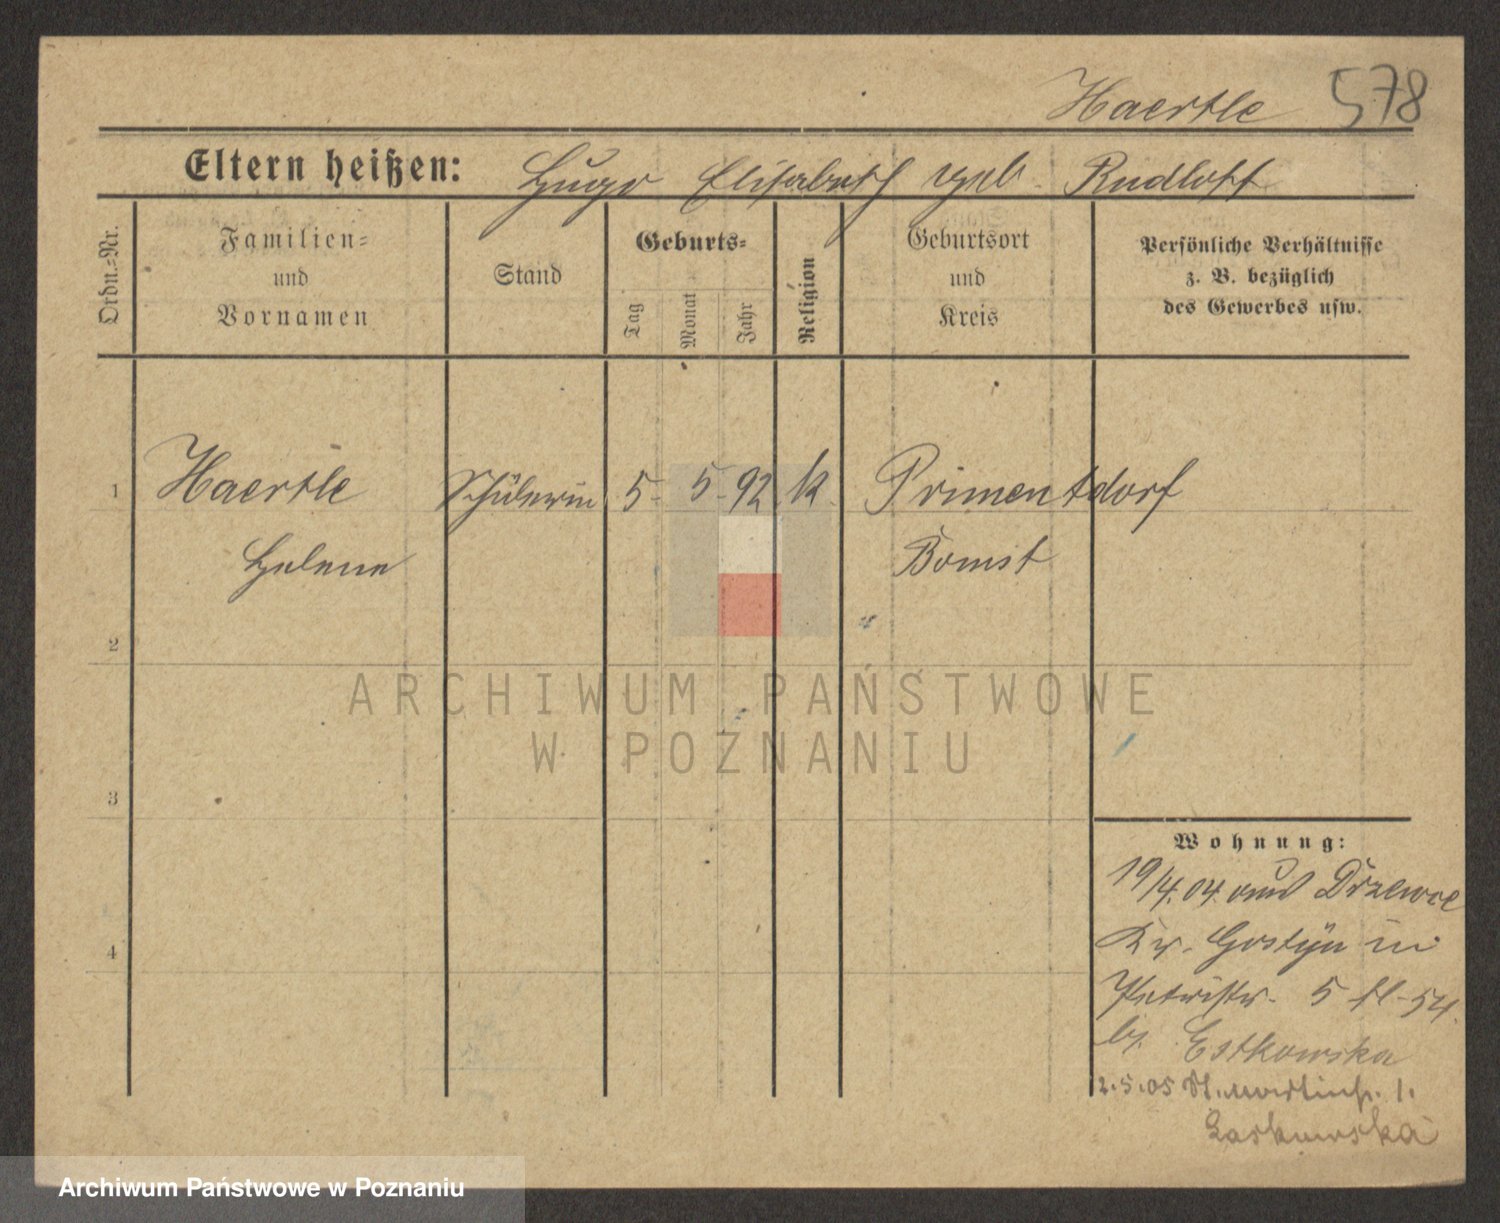 Haertle 578
Eltern heißen: Hugo Elisabeth geb. Rudloff
Ordn.-Nr.
Familien-
und
Vornamen
Stand
Geburts-
Tag
Monat
Jahr
Religion
Geburtsort
und
Kreis
Persönliche Verhältnisse
z. B. bezüglich
des Gewerbes usw.
1 Haertle Schülerin 5. 5. 92 k. Primentdorf
Helene Bomst
2
3
4
ARCHIWUM PAŃSTWOWE
W POZNANIU
Wohnung:
19/4. 04. aus Drzewce
Kr. Gostyn in
Petristr. 5 54.
by Estkowska
2.5.05 St. Martinstr. 1.
Laskowska
Archiwum Państwowe w Poznaniu